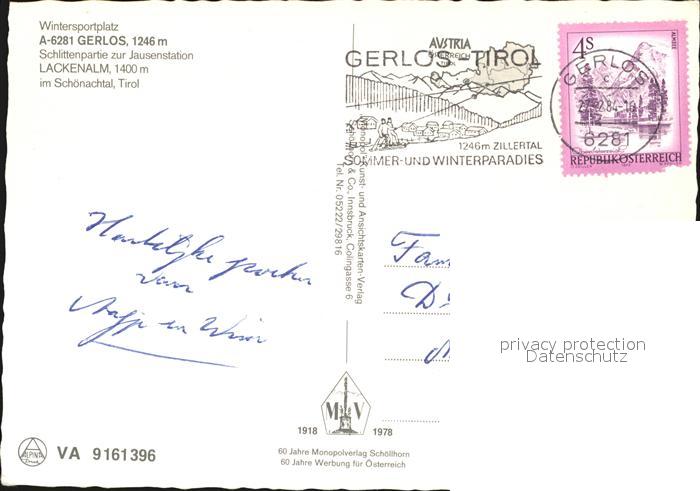 Wintersportplatz
A-6281 GERLOS, 1246 m
Schlittenpartie zur Jausenstation
LACKENALM, 1400 m
im Schönachtal, Tirol
AVSTRIA
ÖSTERREICH
TIROL
GERLOS TIROL
1246m ZILLERTAL
SOMMER-UND WINTERPARADIES
GERLOS
c
6281
4S
ALMSEE
REPUBLIK ÖSTERREICH
Monopol Kunst- und Ansichtskarten-Verlag
Schöllhorn & Co., Innsbruck, Colingasse 6
Tel. Nr. 05222/29816
Hartelijke groeten
van
en
Fam
D
privacy protection
Datenschutz
M V
1918 1978
60 Jahre Monopolverlag Schöllhorn
60 Jahre Werbung für Österreich
ALPINA
Druck
VA 9161396